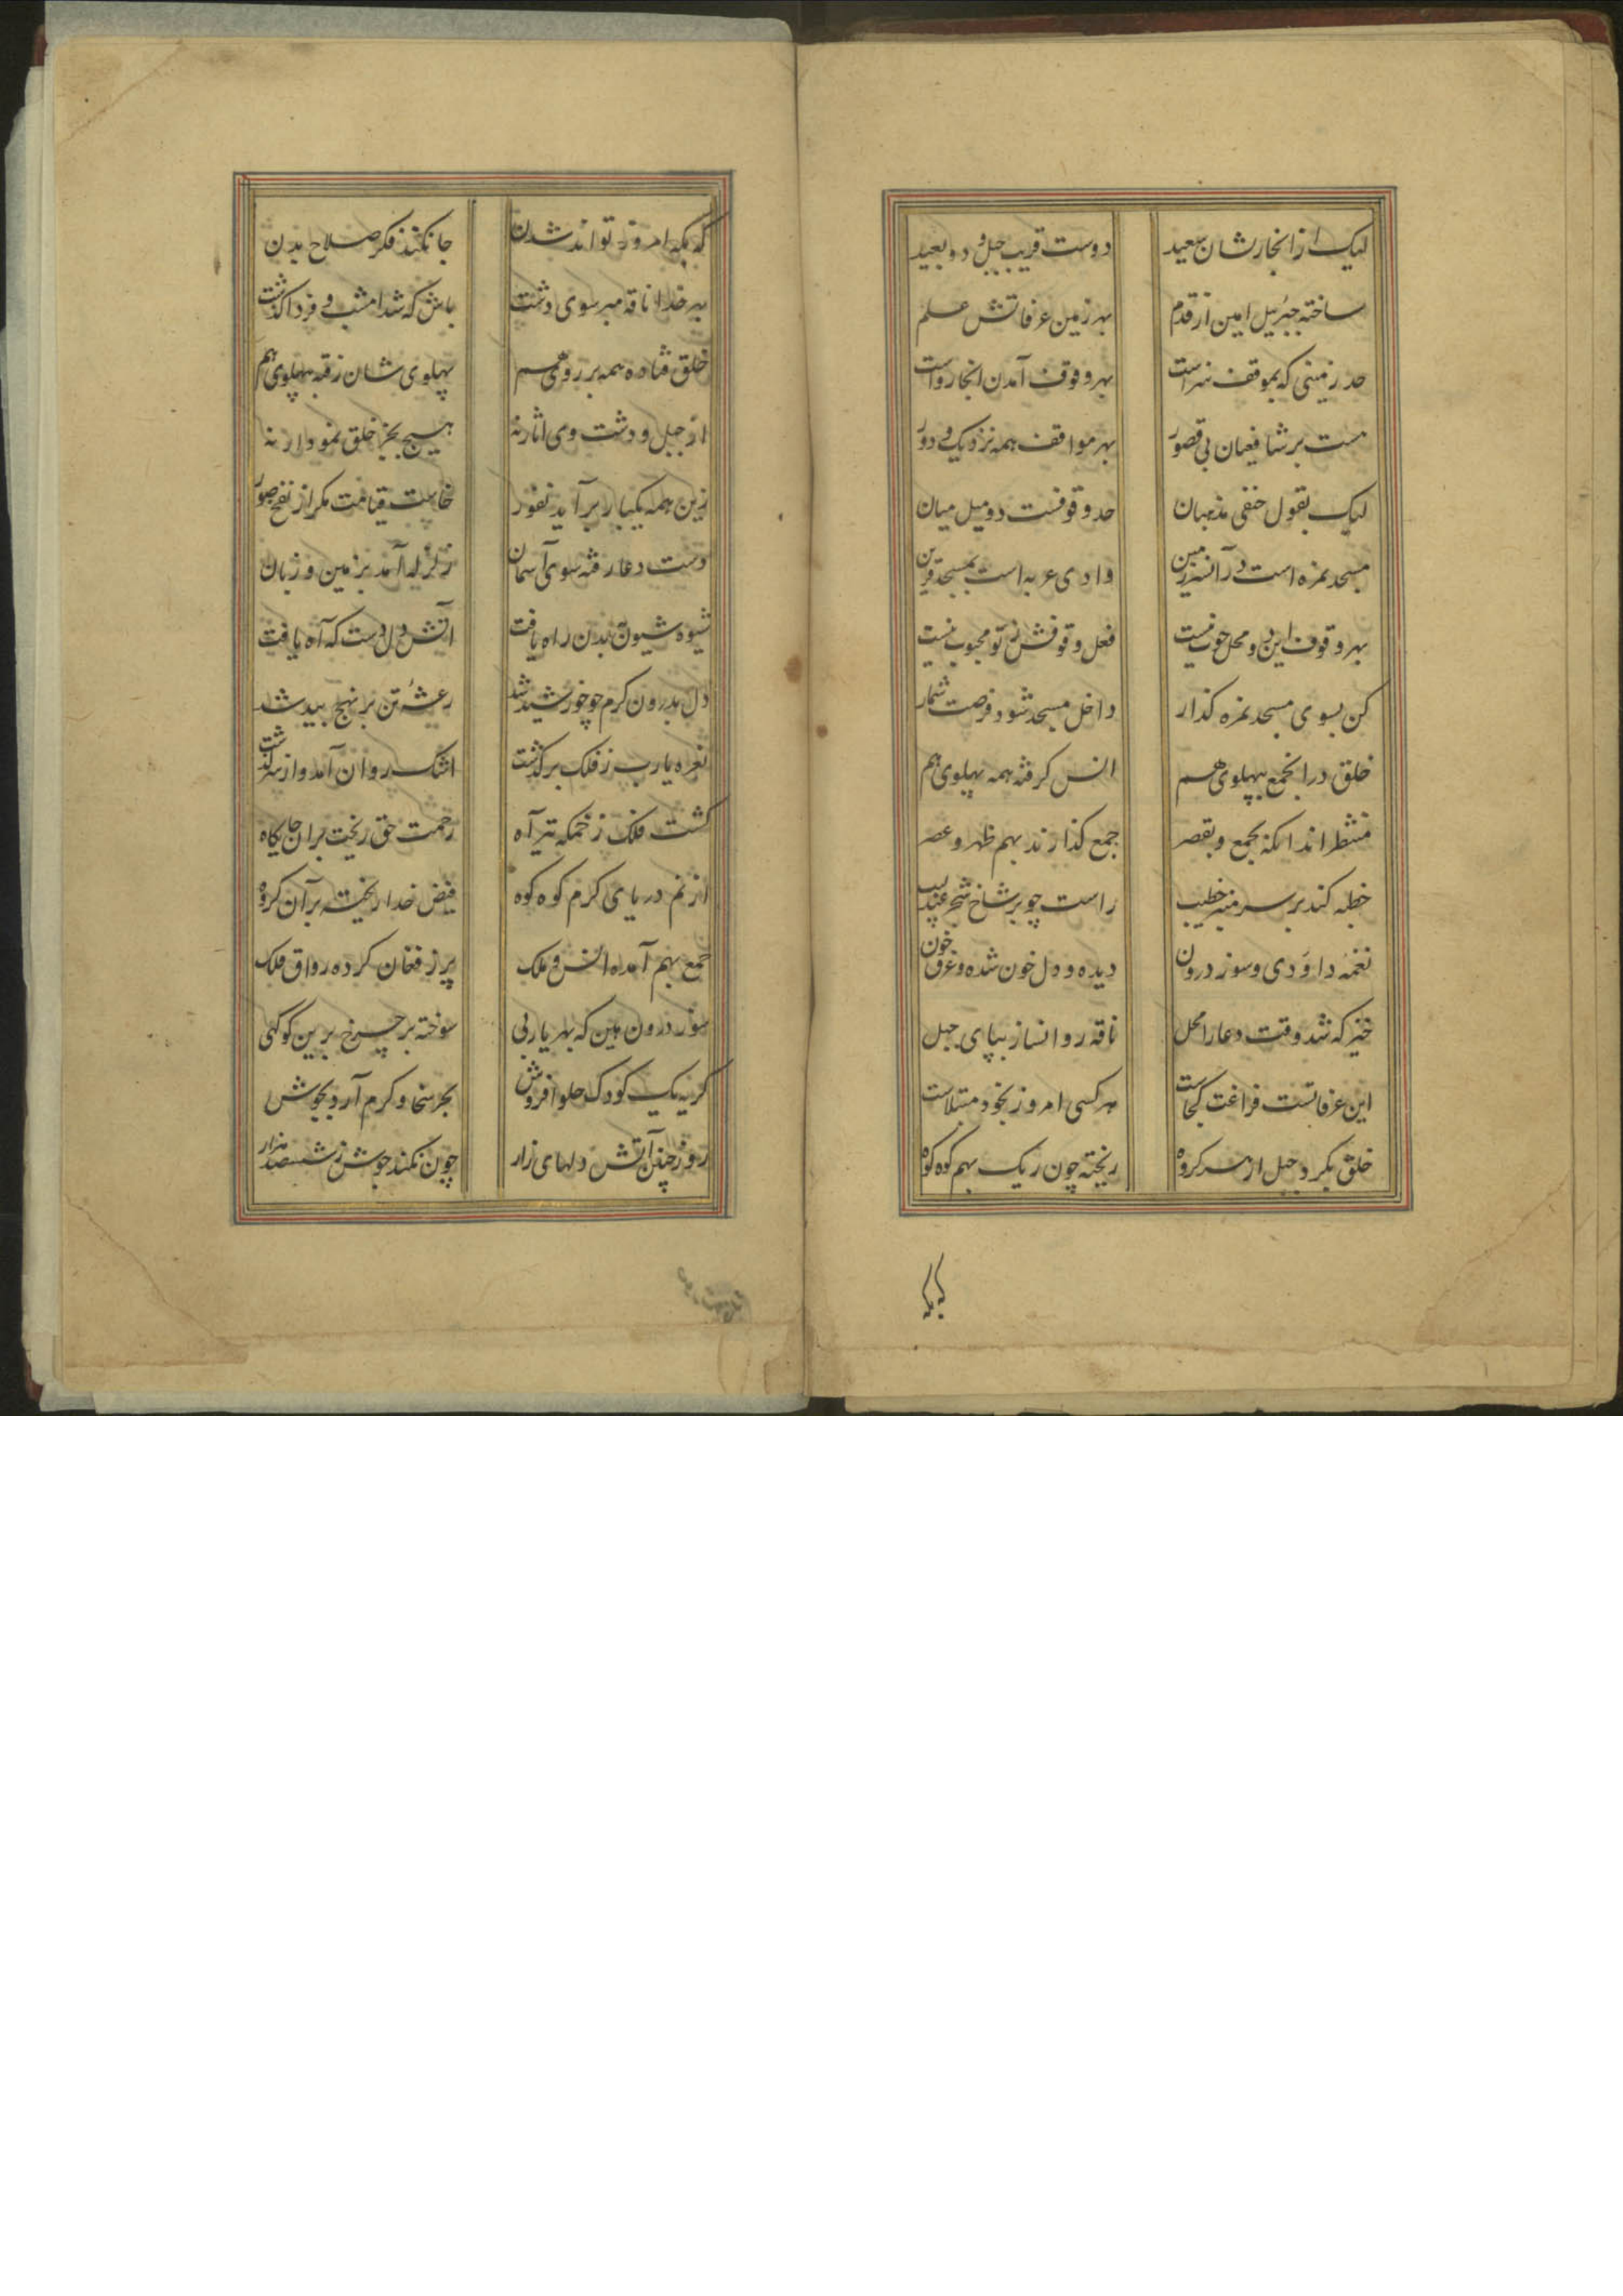 لیک از انجار نشان سعید دوست قریب جبل و دو بعید
ساخته جبرئیل امین از قدم بهر زمین عرفاتش علم
حد زمینی که بموقف سزاست بهر وقوف آمدن انجا رواست
هست بر شافعیان بی قصور بهر مواقف همه نزدیک و دور
لیک بقول حنفی مذهبان حد وقوفست دو میل میان
مسجد نمره است در آن سرزمین وادی عرنه است بمسجد قرین
بهر وقوف این دو محل خوب نیست فعل وقوفش ز تو محبوب نیست
کن بسوی مسجد نمره گذار داخل مسجد شو و فرصت شمار
خلق در انجمع بپهلوی هم انس گرفته همه پهلوی هم
منتظر اند انکه بجمع و بقصر جمع گذارند بهم ظهر و عصر
خطبه کند بر سر منبر خطیب راست چو بر شاخ شجر عندلیب
نغمه داودی و سوز درون دیده و دل خون شده و غرق خون
خیز که شد وقت دعا را محل ناقه روانساز بپای جبل
این عرفاتست فراغت کجاست هر کسی امروز بخود مبتلاست
خلق بگرد جبل از هر گروه ریخته چون ریک بهم کوه کوه
که بکه
که بکه امروز تواند شدن جا نکند فکر صلاح بدن
بهر خدا ناقه مبر سوی دشت باش که شد امشب و فردا گذشت
خلق فتاده همه بر روی هم پهلوی شان رفته بپهلوی هم
از جبل و دشت وی اثار نه هیچ بجز خلق نمودار نه
زین همه یکبار برآید نفور خاست قیامت مگر از نفخ صور
دست دعا رفته سوی آسمان زلزله آمد بزمین و زبان
شیوه شیون ببدن راه یافت آتش دل دست که آه یافت
دل بدرون گرم چو خورشید شد رعشه تن بر نهج بید شد
نعره یارب ز فلک برگذشت اشک روان آمد و از سر گذشت
گشت فلک زخمکه تیر آه رحمت حق ریخت بران جایگاه
از نم دریای کرم کوه کوه فیض خدا ریخته بر آن گروه
جمع بهم آمده انس و ملک پر ز فغان کرده رواق فلک
سوز درون بین که بهر یاربی سوخته بر چرخ برین کوکبی
گریه یک کودک حلوا فروش بحر سخا و کرم آرد بجوش
روز چنین آتش دلهای زار چون نکند جوش ز ششصد هزار